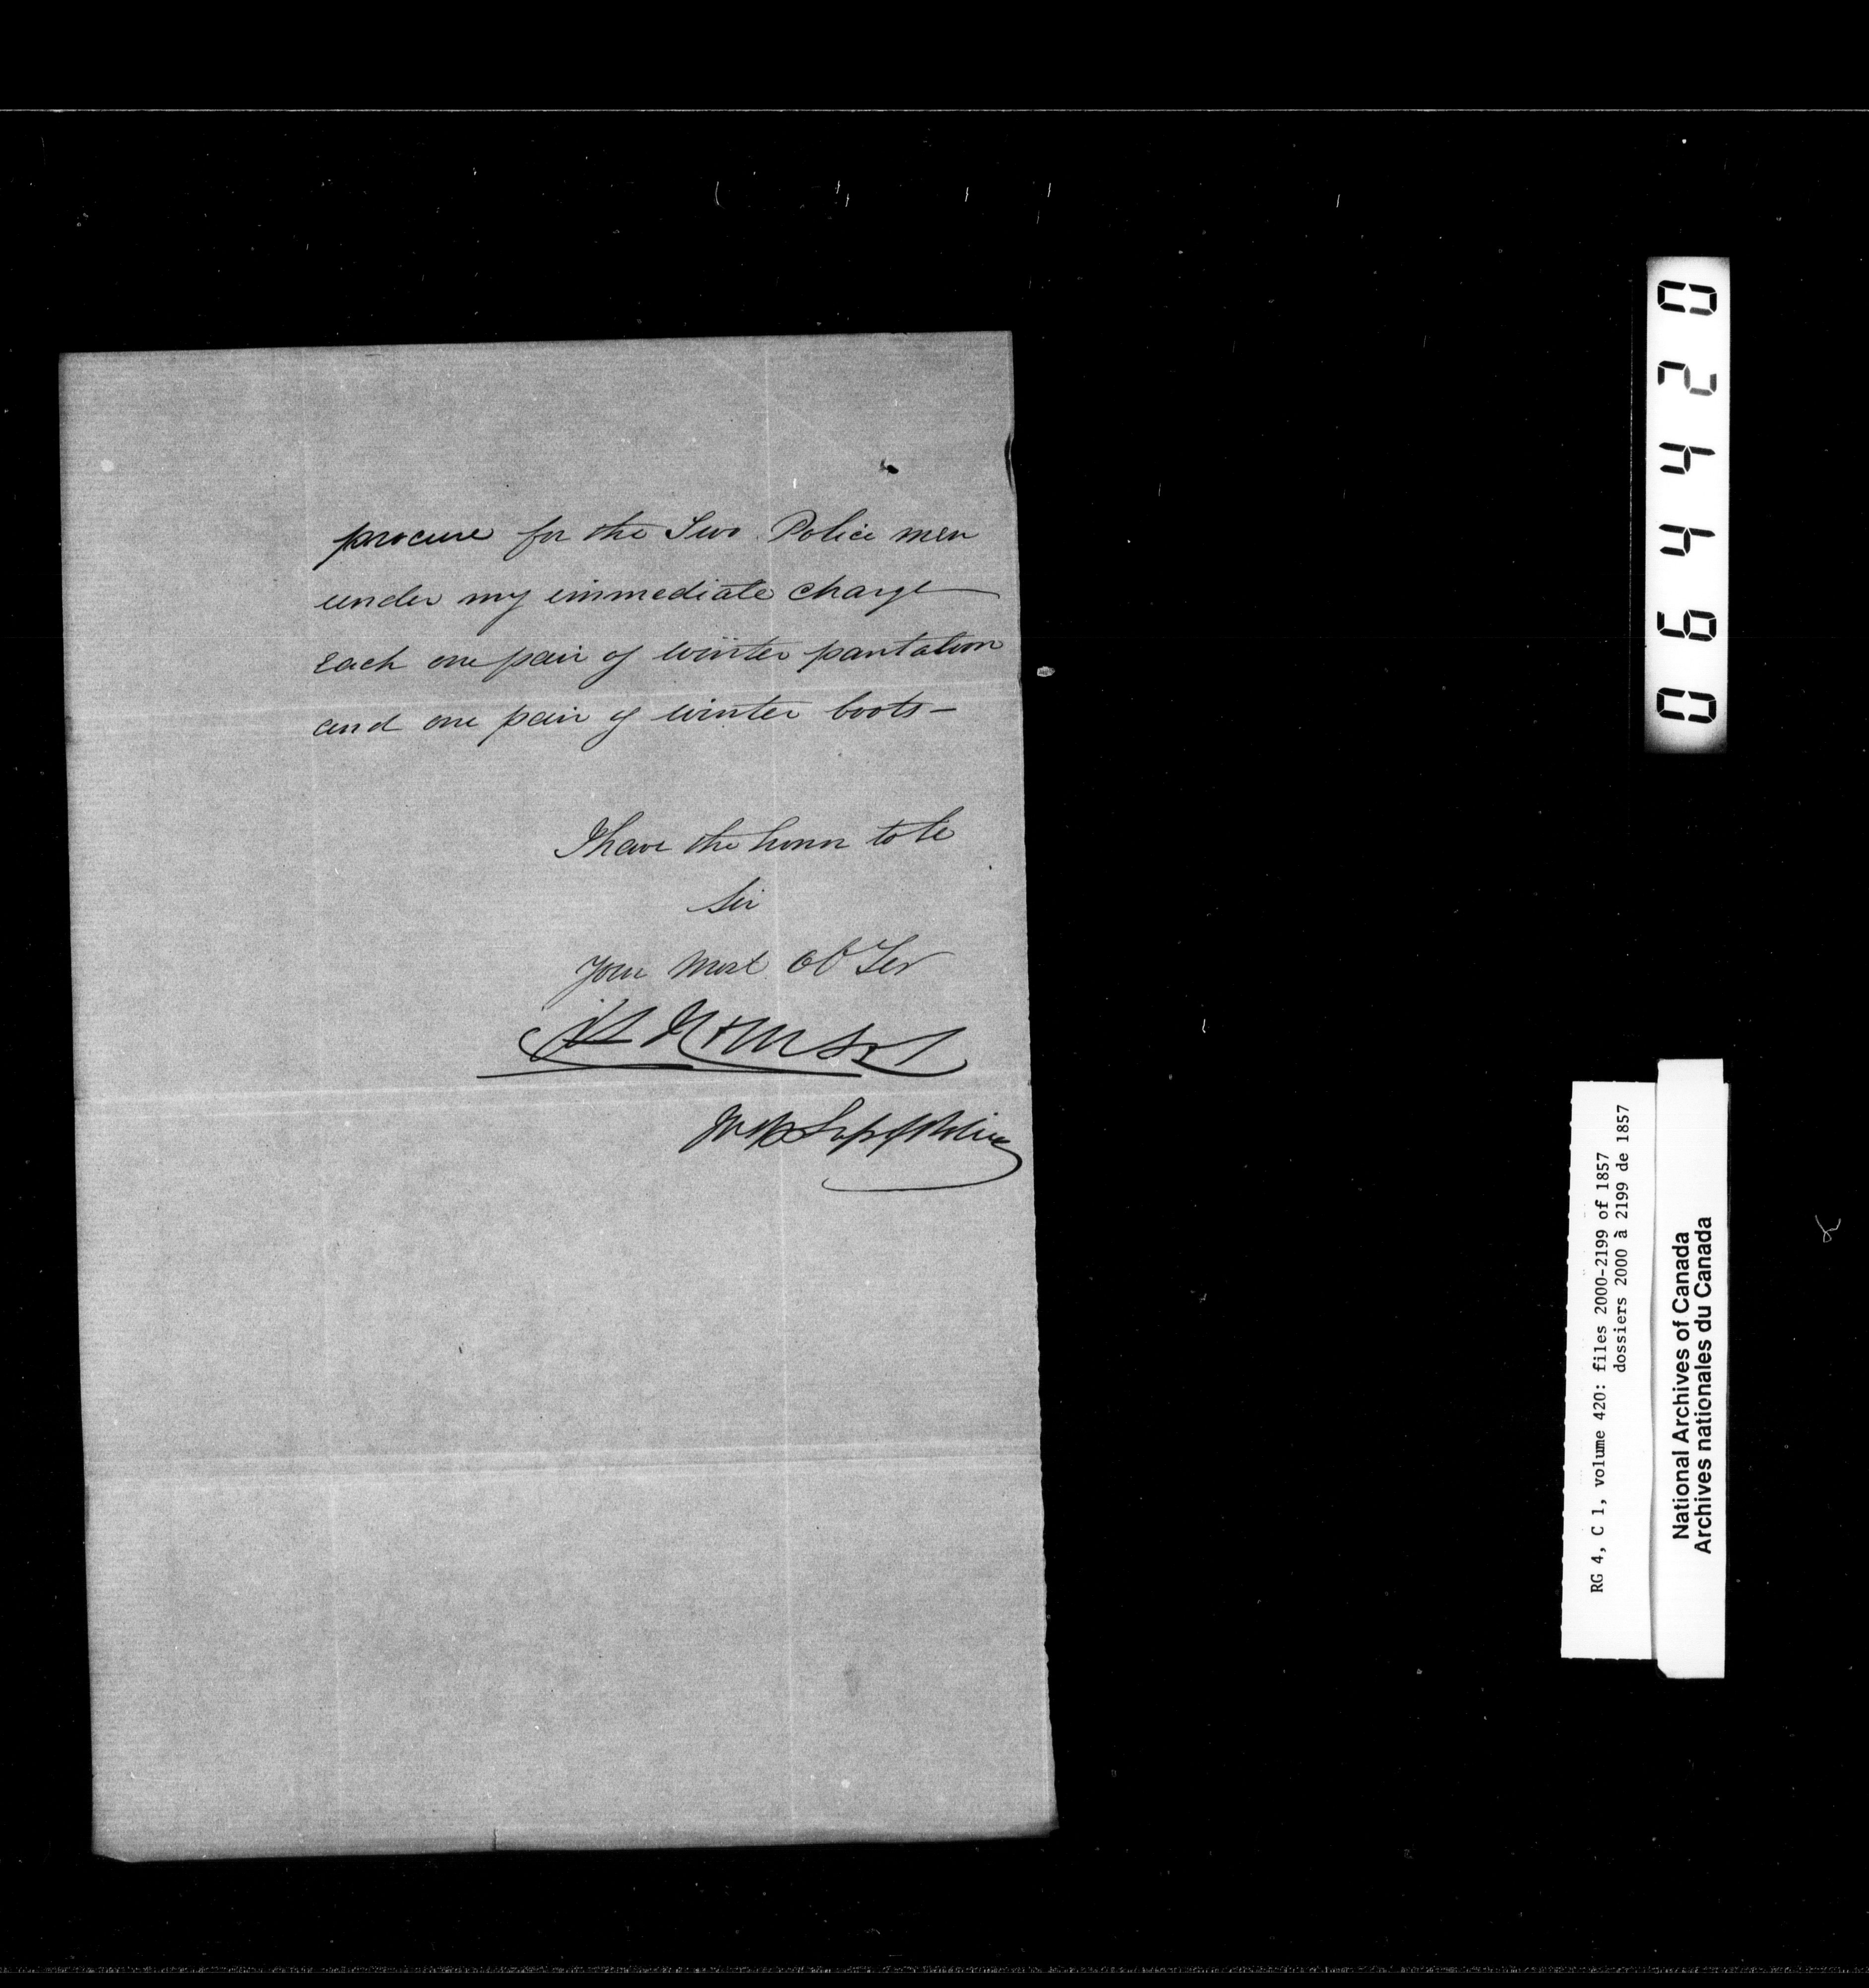 procure for the Two Police men
under my immediate charge
each one pair of winter pantaloon
and one pair of winter boots—
I have the honor to be
Sir
Your Most Ob Ser
064420
RG 4, C 1, volume 420: files 2000-2199 of 1857
dossiers 2000 à 2199 de 1857
National Archives of Canada
Archives nationales du Canada